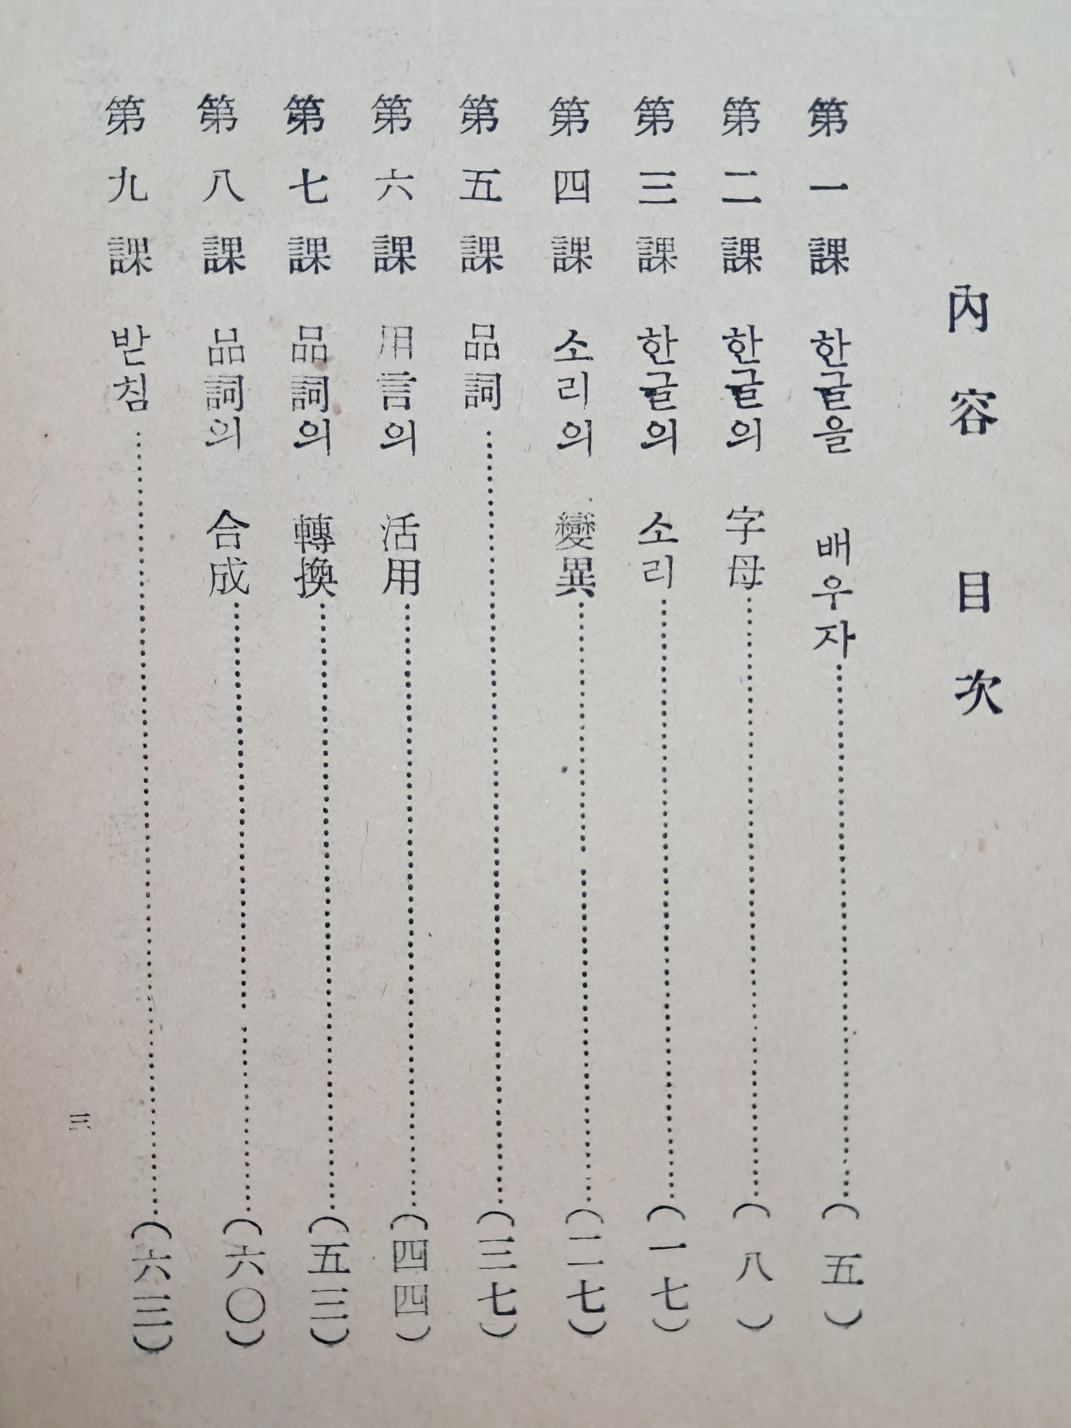 內容目次
第一課 한글을 배우자……(五)
第二課 한글의 字母……(八)
第三課 한글의 소리……(一七)
第四課 소리의 變異……(二七)
第五課 品詞……(三七)
第六課 用言의 活用……(四四)
第七課 品詞의 轉換……(五三)
第八課 品詞의 合成……(六〇)
第九課 받침……(六三)
三